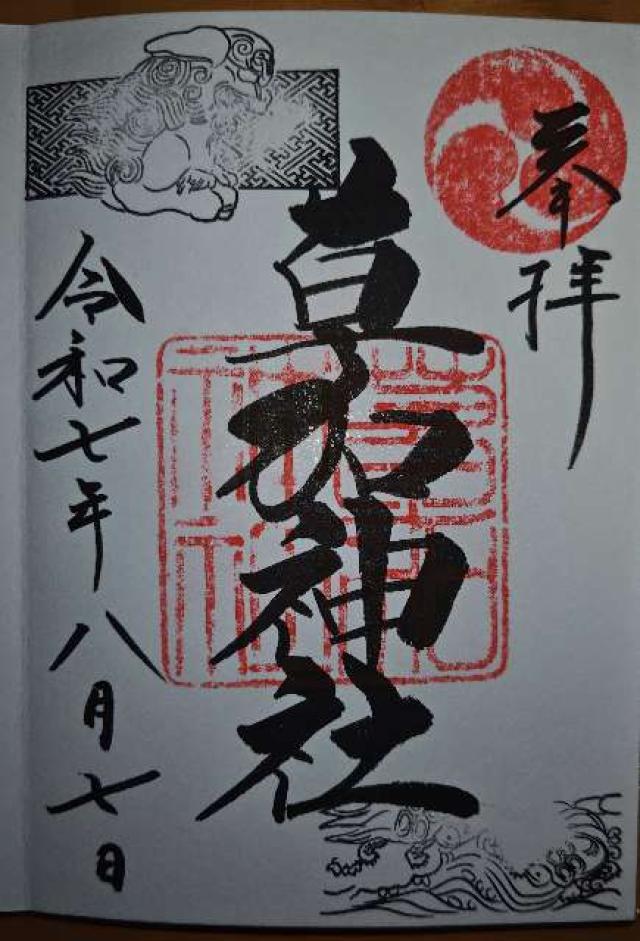 奉拝
草加神社
令和七年八月七日